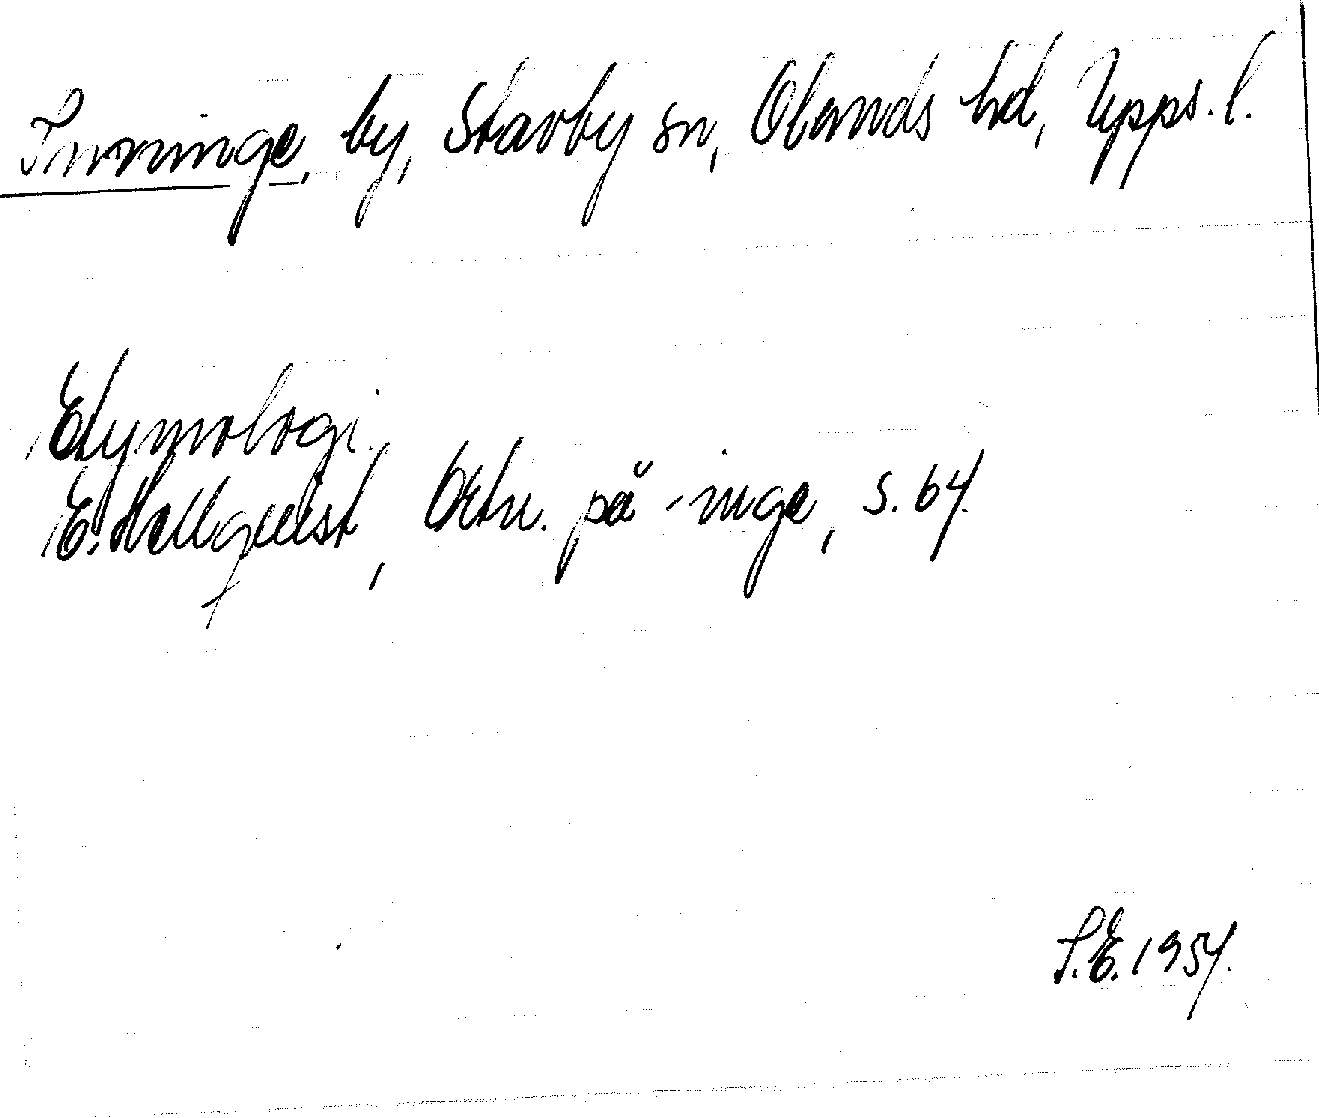 Inninge, by, Stavby sn, Olands hd, Upps. l.
Etymologi.
E. Hellquist, Ortn. på -inge, s. 64.
S.E. 1954.